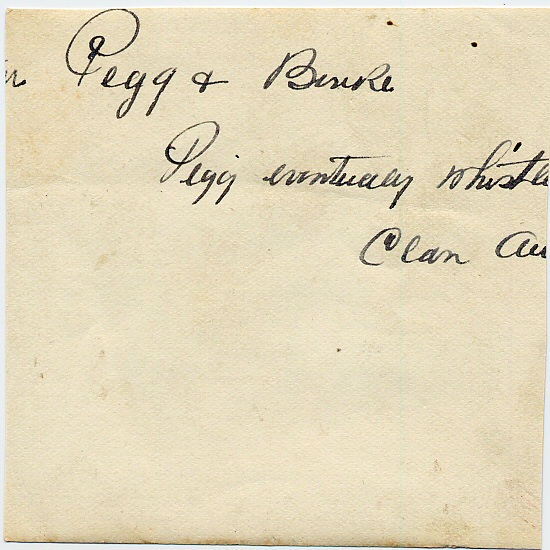 Pegg & Binke
Pegg eventually whistle
Clan Au